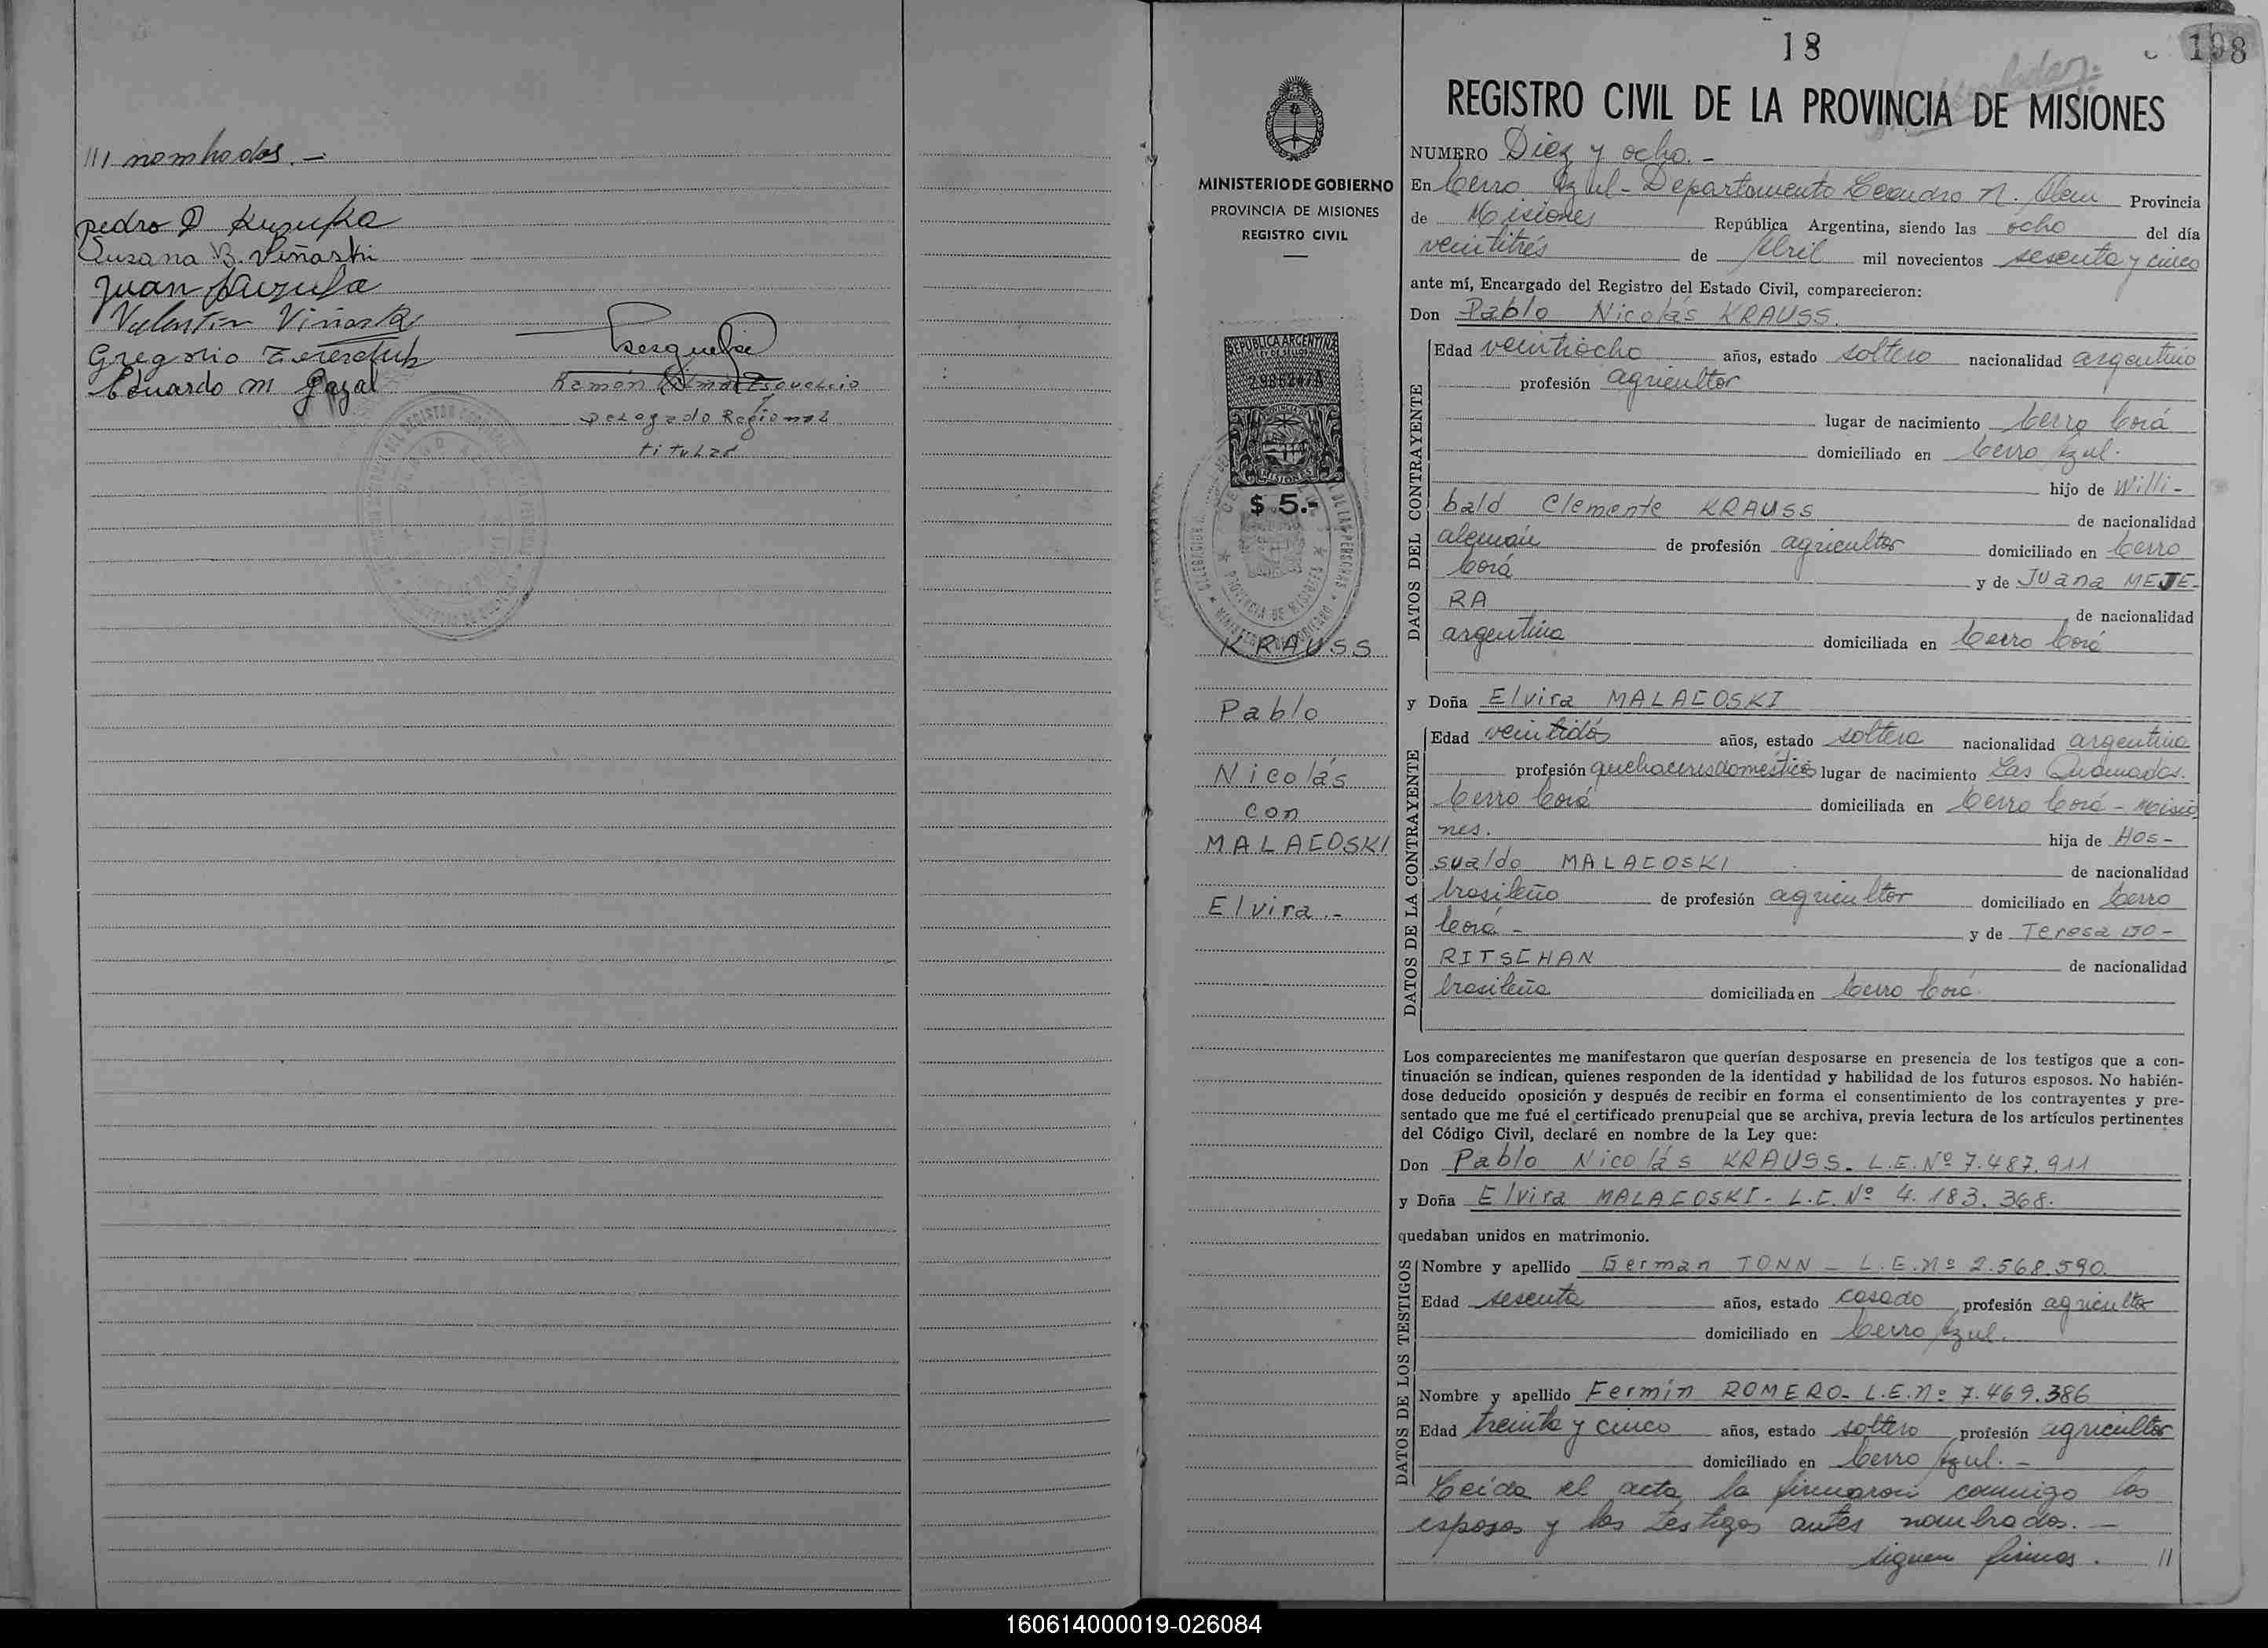 /// nombrados. –
Pedro D Kuzuka
Susana B. Viñaski
Juan Kuzuka
Valentín Viñaski
Gregorio
Eduardo M
Ramón
Delegado Regional
titular
18
198
REGISTRO CIVIL DE LA PROVINCIA DE MISIONES
MINISTERIO DE GOBIERNO
PROVINCIA DE MISIONES
REGISTRO CIVIL
REPUBLICA ARGENTINA
LEY DE SELLOS
MISIONES
$ 5.-
KRAUSS
Pablo
Nicolás
con
MALACOSKI
Elvira.-
NUMERO Diez y ocho. -
En Cerro Azul - Departamento Leandro N. Alem Provincia
de Misiones República Argentina, siendo las ocho del día
veintitrés de Abril mil novecientos sesenta y cinco
ante mí, Encargado del Registro del Estado Civil, comparecieron:
Don Pablo Nicolás KRAUSS.
DATOS DEL CONTRAYENTE
Edad veintiocho años, estado soltero nacionalidad argentino
profesión agricultor
lugar de nacimiento Cerro Corá
domiciliado en Cerro Azul.
hijo de Willi-
bald Clemente KRAUSS de nacionalidad
alemán de profesión agricultor domiciliado en Cerro
Corá y de Juana MEJE-
RA de nacionalidad
argentina domiciliada en Cerro Corá
y Doña Elvira MALACOSKI
DATOS DE LA CONTRAYENTE
Edad veintidós años, estado soltera nacionalidad argentina
profesión quehaceres domésticos lugar de nacimiento Las Quemadas.
Cerro Corá domiciliada en Cerro Corá - Misio
nes. hija de HOS-
sualdo MALACOSKI de nacionalidad
brasileño de profesión agricultor domiciliado en Cerro
Corá - y de Teresa GO-
RITSCHAN de nacionalidad
brasileña domiciliada en Cerro Corá
Los comparecientes me manifestaron que querían desposarse en presencia de los testigos que a con-
tinuación se indican, quienes responden de la identidad y habilidad de los futuros esposos. No habién-
dose deducido oposición y después de recibir en forma el consentimiento de los contrayentes y pre-
sentado que me fué el certificado prenupcial que se archiva, previa lectura de los artículos pertinentes
del Código Civil, declaré en nombre de la Ley que:
Don Pablo Nicolás KRAUSS. L.E. Nº 7.487.911
y Doña Elvira MALACOSKI - L.C. Nº 4.183.368.
quedaban unidos en matrimonio.
DATOS DE LOS TESTIGOS
Nombre y apellido German TONN - L.E. Nº 2.568.590.
Edad sesenta años, estado casado profesión agricultor
domiciliado en Cerro Azul.
Nombre y apellido Fermín ROMERO - L.E. Nº 7.469.386
Edad treinta y cinco años, estado soltero profesión agricultor
domiciliado en Cerro Azul. -
Leída el acta la firmaron conmigo los
esposos y los testigos antes nombrados. -
siguen firmas. //
160614000019-026084